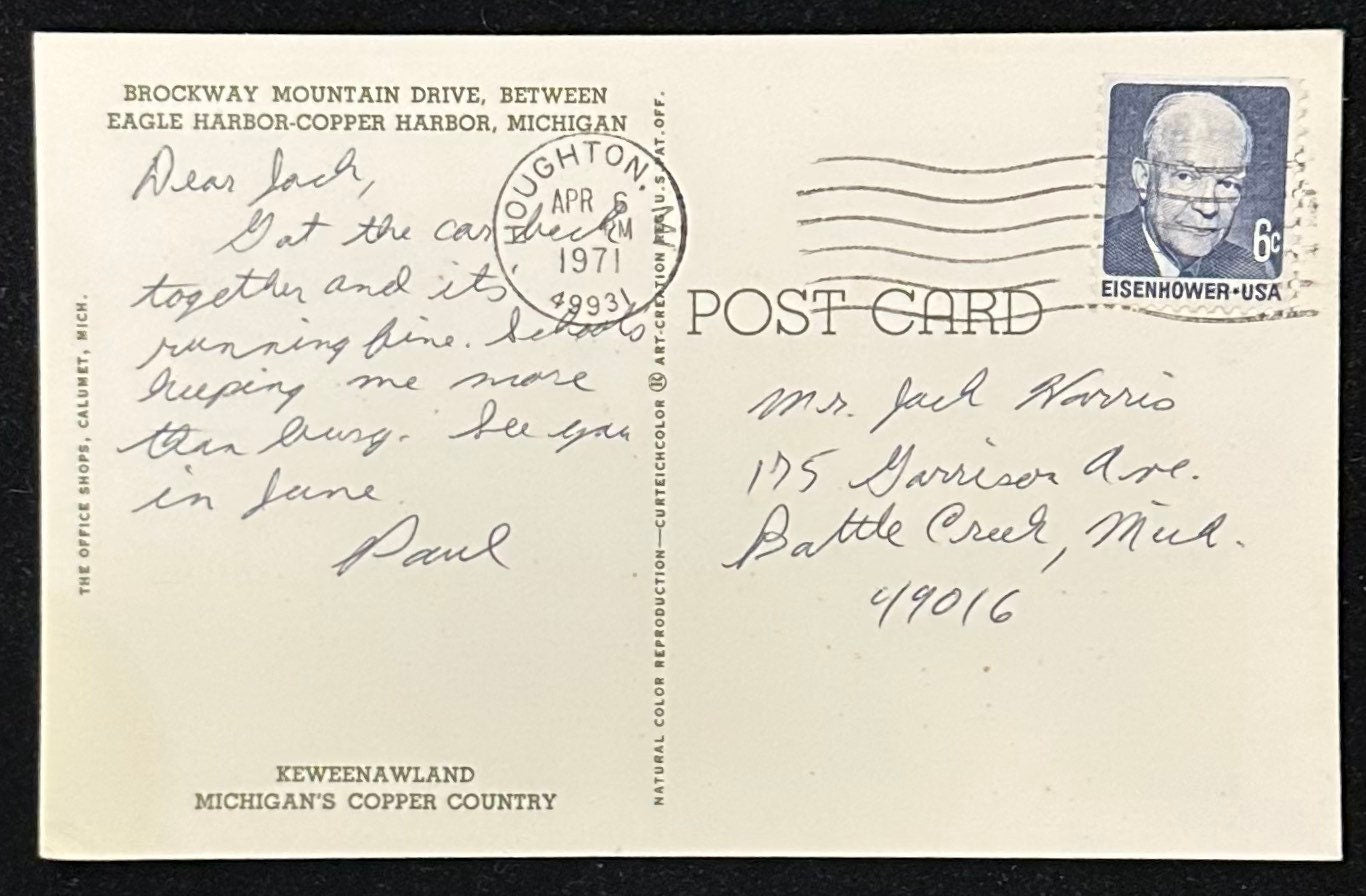 BROCKWAY MOUNTAIN DRIVE, BETWEEN
EAGLE HARBOR-COPPER HARBOR, MICHIGAN
Dear Jack,
Got the car back
together and its
running fine. Schools
keeping me more
than busy. See you
in June.
Paul
KEWEENAWLAND
MICHIGAN'S COPPER COUNTRY
THE OFFICE SHOPS, CALUMET, MICH.
NATURAL COLOR REPRODUCTION—CURTEICHCOLOR ® ART-CREATION REG. U.S. PAT. OFF.
HOUGHTON, MI
APR 6
PM
1971
49931
EISENHOWER•USA
6c
POST CARD
Mr. Jack Harris
175 Garrison Ave.
Battle Creek, Mich.
49016